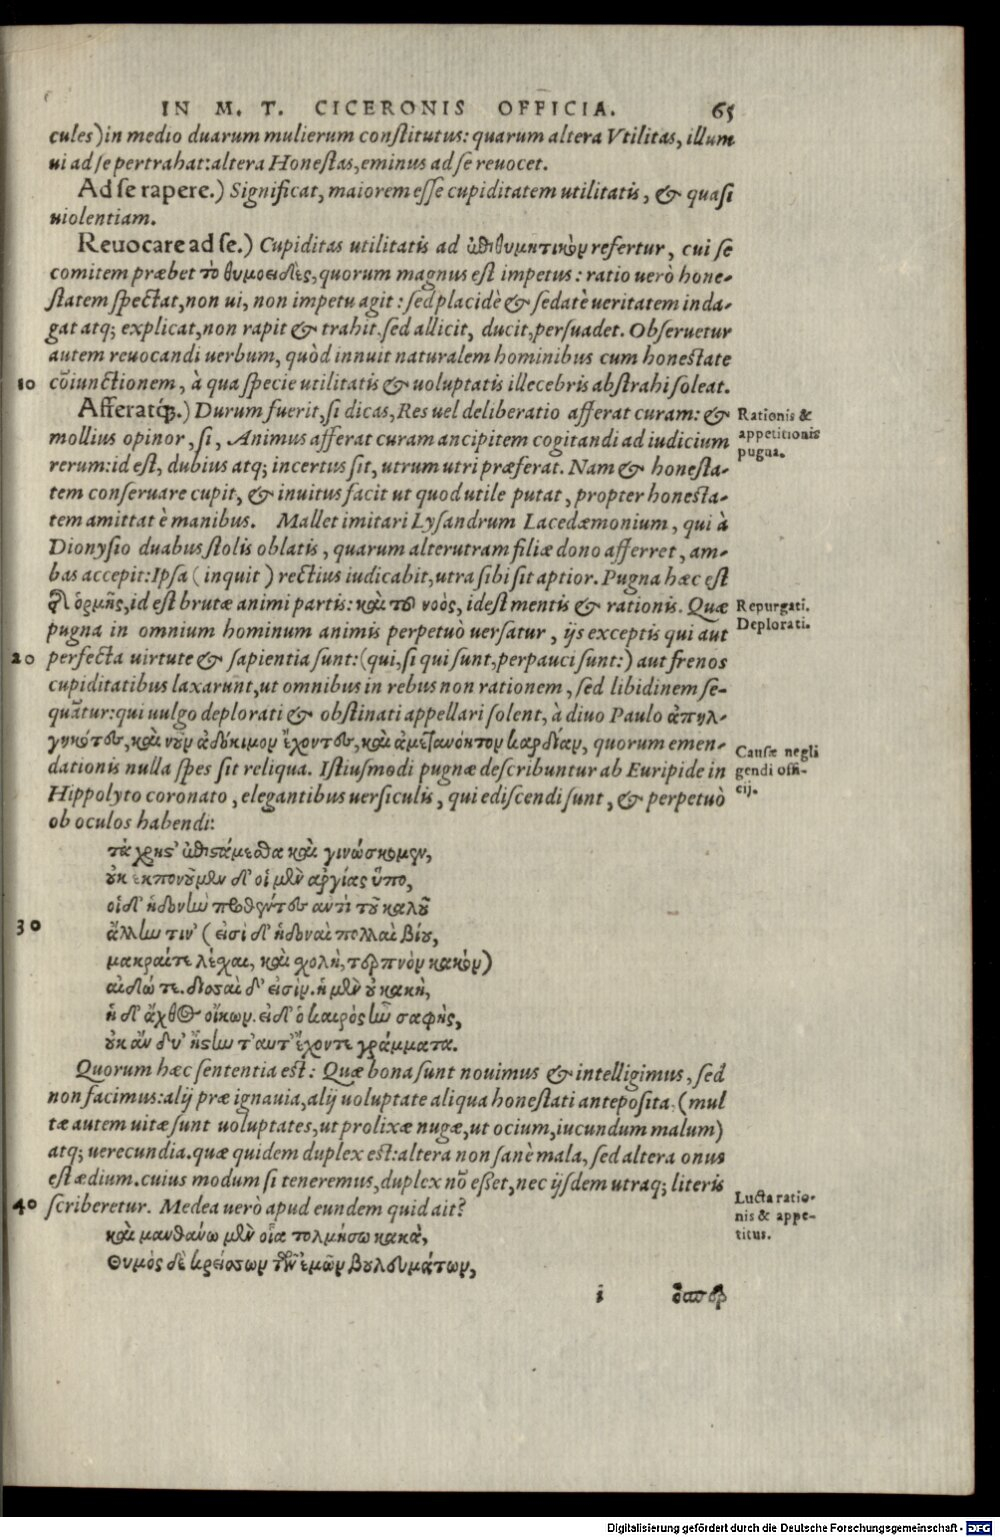 IN M. T. CICERONIS OFFICIA. 65
cules) in medio duarum mulierum constitutus: quarum altera Vtilitas, illum
ui ad se pertrahat: altera Honestas, eminus ad se reuocet.
Ad se rapere.) Significat, maiorem esse cupiditatem utilitatis, & quasi
uiolentiam.
Reuocare ad se.) Cupiditas utilitatis ad ἐπιθυμητικὸν refertur, cui se
comitem præbet τὸ θυμοειδὲς, quorum magnus est impetus: ratio uerò hone-
statem spectat, non ui, non impetu agit: sed placidè & sedatè ueritatem inda-
gat atq; explicat, non rapit & trahit. sed allicit, ducit, persuadet. Obseruetur
autem reuocandi uerbum, quòd innuit naturalem hominibus cum honestate
10 cōiunctionem, à qua specie utilitatis & uoluptatis illecebris abstrahi soleat.
Afferatq́;.) Durum fuerit, si dicas, Res uel deliberatio afferat curam: &
Rationis &
appetitionis
pugna.
mollius opinor, si, Animus afferat curam ancipitem cogitandi ad iudicium
rerum: id est, dubius atq; incertus sit, utrum utri præferat. Nam & honesta-
tem conseruare cupit, & inuitus facit ut quod utile putat, propter honesta-
tem amittat è manibus. Mallet imitari Lysandrum Lacedæmonium, qui à
Dionysio duabus stolis oblatis, quarum alterutram filiæ dono afferret, am-
bas accepit: Ipsa (inquit) rectius iudicabit, utra sibi sit aptior. Pugna hæc est
τῆς ὁρμῆς, id est brutæ animi partis: καὶ τοῦ νοὸς, id est mentis & rationis. Quæ
Repurgati.
Deplorati.
pugna in omnium hominum animis perpetuò uersatur, ijs exceptis qui aut
20 perfecta uirtute & sapientia sunt: (qui, si qui sunt, perpauci sunt:) aut frenos
cupiditatibus laxarunt, ut omnibus in rebus non rationem, sed libidinem se-
quātur: qui uulgo deplorati & obstinati appellari solent, à diuo Paulo ἀπηλ-
γηκότες, καὶ νοῦν ἀδόκιμον ἔχοντες, καὶ ἀμετανόητον καρδίαν, quorum emen-
Causæ negli
gendi offi-
cij.
dationis nulla spes sit reliqua. Istiusmodi pugnæ describuntur ab Euripide in
Hippolyto coronato, elegantibus uersiculis, qui ediscendi sunt, & perpetuò
ob oculos habendi:
τὰ χρηστ' ἐπιστάμεσθα καὶ γινώσκομεν,
οὐκ ἐκπονοῦμεν δ' οἱ μὲν ἀργίας ὕπο,
οἱ δ' ἡδονὴν προθέντες ἀντὶ τοῦ καλοῦ
30 ἄλλην τιν' (εἰσὶ δ' ἡδοναὶ πολλαὶ βίου,
μακραί τε λέσχαι, καὶ σχολὴ, τερπνὸν κακόν)
αἰδώ τε. δισσαὶ δ' εἰσιν. ἡ μὲν οὐ κακὴ,
ἡ δ' ἄχθος οἴκων. εἰ δ' ὁ καιρὸς ἦν σαφὴς,
οὐκ ἂν δύ' ἤστην ταυτ' ἔχοντε γράμματα.
Quorum hæc sententia est: Quæ bona sunt nouimus & intelligimus, sed
non facimus: alij præ ignauia, alij uoluptate aliqua honestati anteposita. (mul
tæ autem uitæ sunt uoluptates, ut prolixæ nugæ, ut ocium, iucundum malum)
atq; uerecundia. quæ quidem duplex est: altera non sanè mala, sed altera onus
est ædium. cuius modum si teneremus, duplex nō esset, nec ijsdem utraq; literis
40 scriberetur. Medea uerò apud eundem quid ait?
Lucta ratio-
nis & appe-
titus.
καὶ μανθάνω μὲν οἷα τολμήσω κακὰ,
Θυμὸς δὲ κρείσσων τῶν ἐμῶν βουλευμάτων,
i ὅσπερ
Digitalisierung gefördert durch die Deutsche Forschungsgemeinschaft - DFG